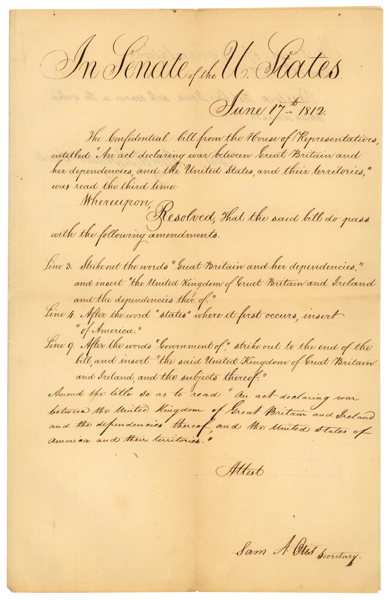 In Senate of the U. States
June 17th 1812.
The Confidential bill from the House of Representatives,
entitled "An act declaring war between Great Britain and
her dependencies, and the United States, and their territories,"
was read the third time
Whereupon,
Resolved, That the said bill do pass
with the following amendments.
Line 3. Strike out the words "Great Britain and her dependencies,"
and insert "the United Kingdom of Great Britain and Ireland
and the dependencies thereof."
Line 4. After the word "states" where it first occurs, insert
"of America."
Line 9. After the words "Government of," strike out to the end of the
bill, and insert "the said United Kingdom of Great Britain
and Ireland, and the subjects thereof."
Amend the title so as to read "An act declaring war
between the United Kingdom of Great Britain and Ireland
and the dependencies thereof, and the United States of
America and their territories."
Attest
Sam A Otis Secretary.